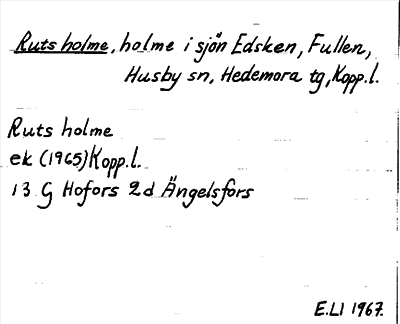 Ruts holme, holme i sjön Edsken, Fullen,
Husby sn, Hedemora tg, Kopp.l.
Ruts holme
ek (1965) Kopp.l.
13 G Hofors 2d Ängelsfors
E.Ll 1967.